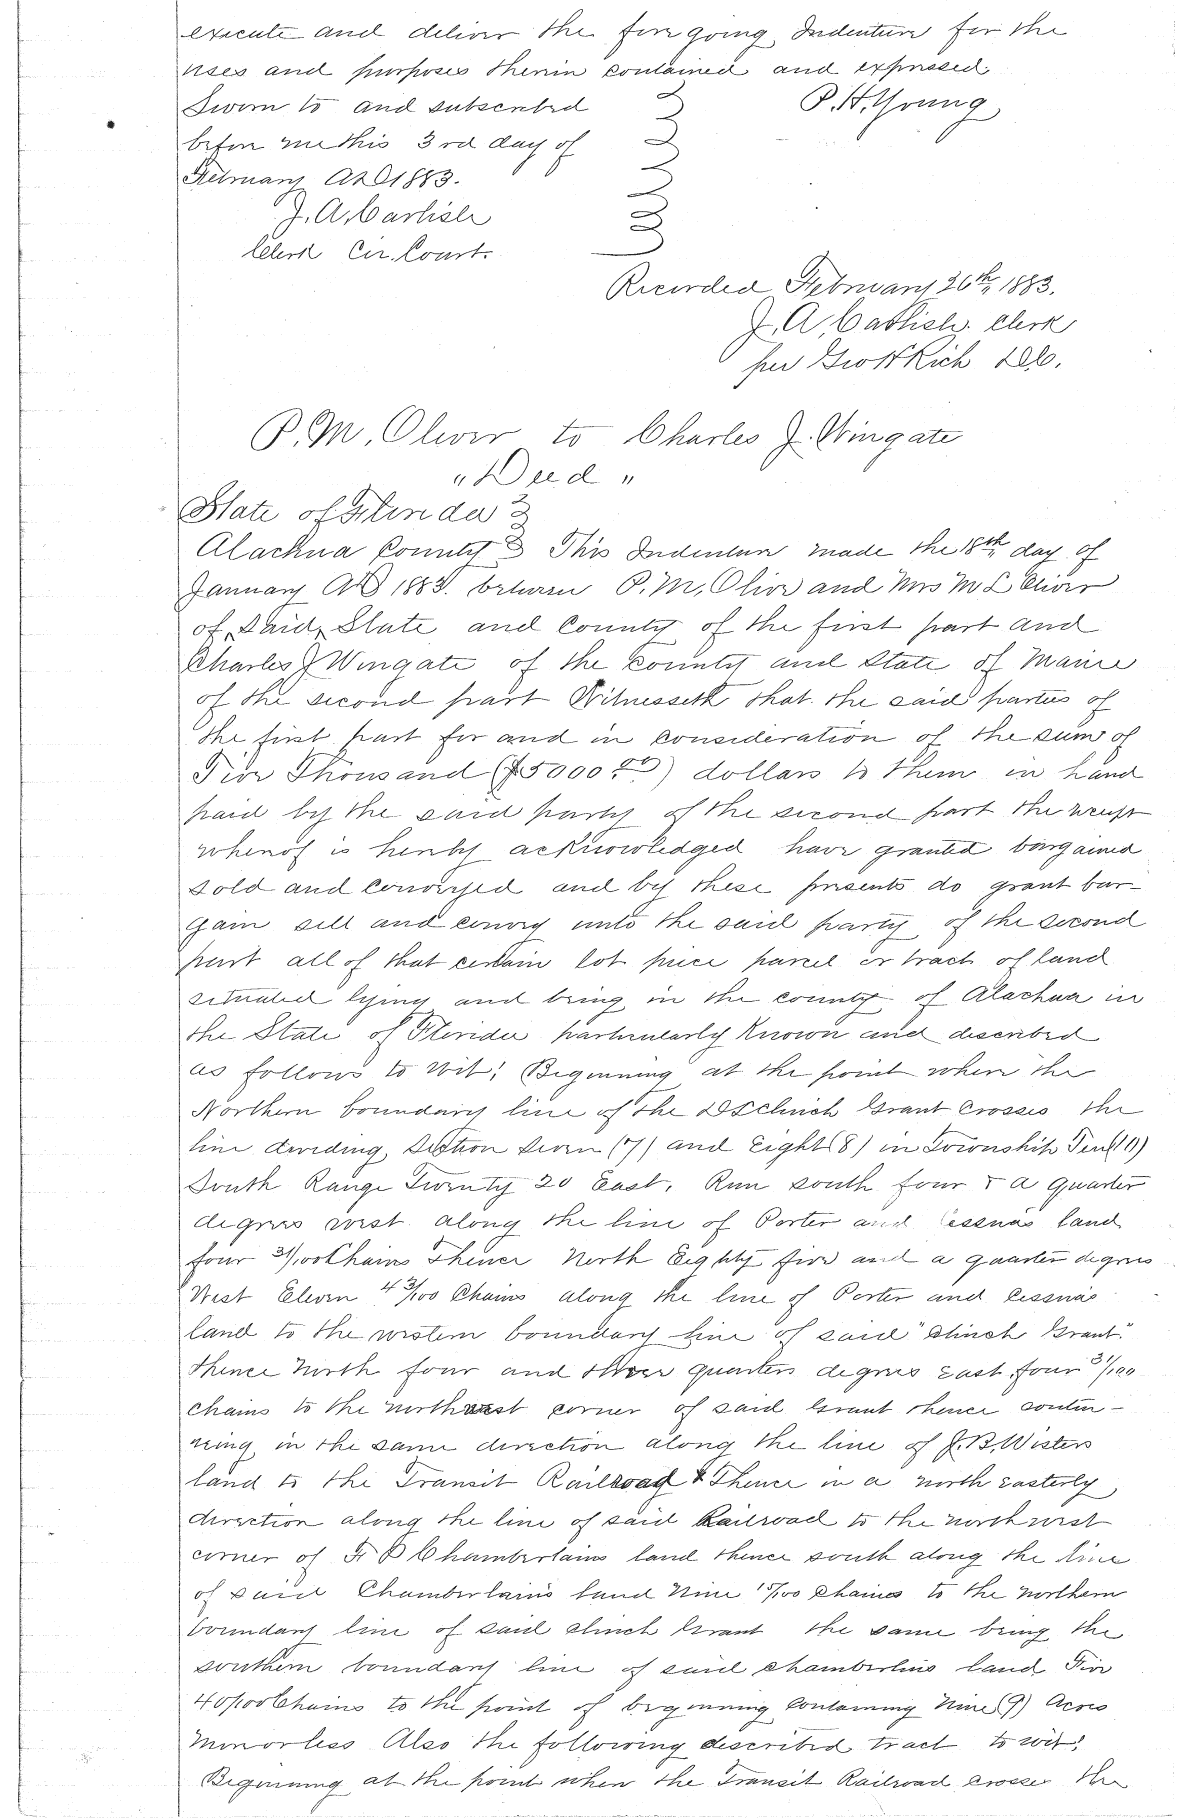 execute and deliver the fore going Indenture for the
uses and purposes therein contained and expressed
Sworn to and subscribed
P. H. Young
before me this 3rd day of
February AD 1883.
J. A. Carlisle
Clerk Cir. Court.
Recorded February 26th 1883.
J. A. Carlisle. Clerk
per Rich D.C.
P. M. Oliver to Charles J. Wingate
"Deed"
State of Florida
Alachua County This Indenture made the 18th day of
January AD 1883. between P. M. Oliver and Mrs M L Oliver
of Said State and County of the first part and
Charles J Wingate of the County and State of Maine
of the second part Witnesseth that the said parties of
the first part for and in consideration of the sum of
Five Thousand ($5000.00) dollars to them in hand
paid by the said party of the second part the receipt
whereof is hereby acknowledged have granted bargained
sold and conveyed and by these presents do grant bar-
gain sell and convey unto the said party of the second
part all of that certain lot piece parcel or tract of land
situated lying and being in the county of Alachua in
the State of Florida particularly Known and described
as follows to wit; Beginning at the point where the
Northern boundary line of the Clinch Grant Crosses the
line dividing Section Seven (7) and Eight (8) in Township Ten (10)
South Range Twenty 20 East. Run south four & a quarter
degrees west along the line of Porter and Cessnas land
four 31/100 Chains Thence North Eighty five and a quarter degrees
West Eleven 43/100 Chains along the line of Porter and Cessnas
land to the western boundary line of said "Clinch Grant"
Thence North four and three quarters degrees East. four 31/100
chains to the northwest corner of said Grant thence contin-
uing in the same direction along the line of J. B. Wisters
land to the Transit Railroad & Thence in a north easterly
direction along the line of said Railroad to the northwest
corner of Chamberlains land thence south along the line
of said Chamberlain's land Nine Chains to the northern
boundary line of said Clinch Grant the same being the
southern boundary line of said Chamberlins land Five
40/100 Chains to the point of beginning containing Nine (9) Acres
more or less Also the following described tract to wit;
Beginning at the point when the Transit Railroad crosses the